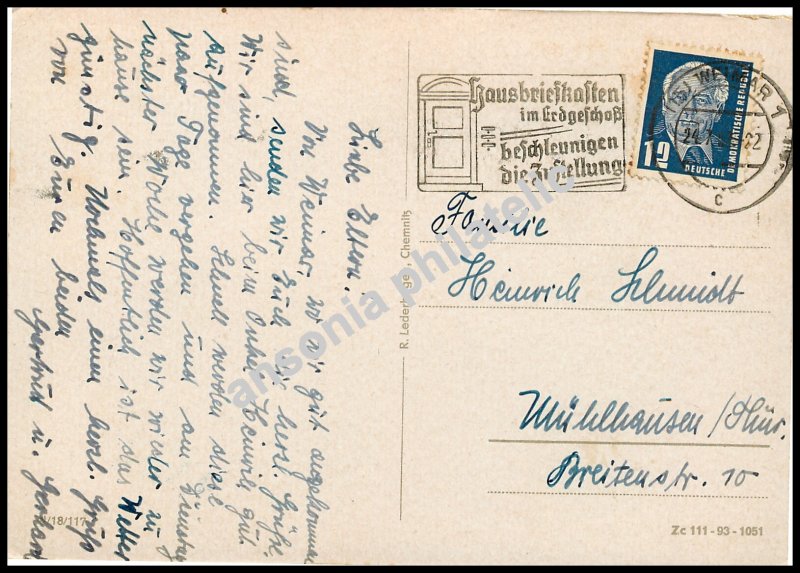 Liebe Eltern.
Von Weimar, wo wir gut angekommen
sind, senden wir Euch die herzl. Grüße.
Wir sind hier beim Onkel Heinrich gut
aufgenommen. Schnell werden diese
paar Tage vergehen und am Dienstag
nächster Woche werden wir wieder zu
hause sein. Hoffentlich ist das Wetter
günstig. Nochmals einen herzl. Gruß
von Euren beiden
Gertrud u. Gerhard
V/18/117
R. Lederbogen, Chemnitz
Hausbriefkasten
im Erdgeschoß
beschleunigen
die Zustellung
WEIMAR 1
c
12
DEUTSCHE DEMOKRATISCHE REPUBLIK
Familie
Heinrich Schmidt
Mühlhausen/Thür.
Breitenstr. 10
Zc 111 - 93 - 1051
ansonia philatelic